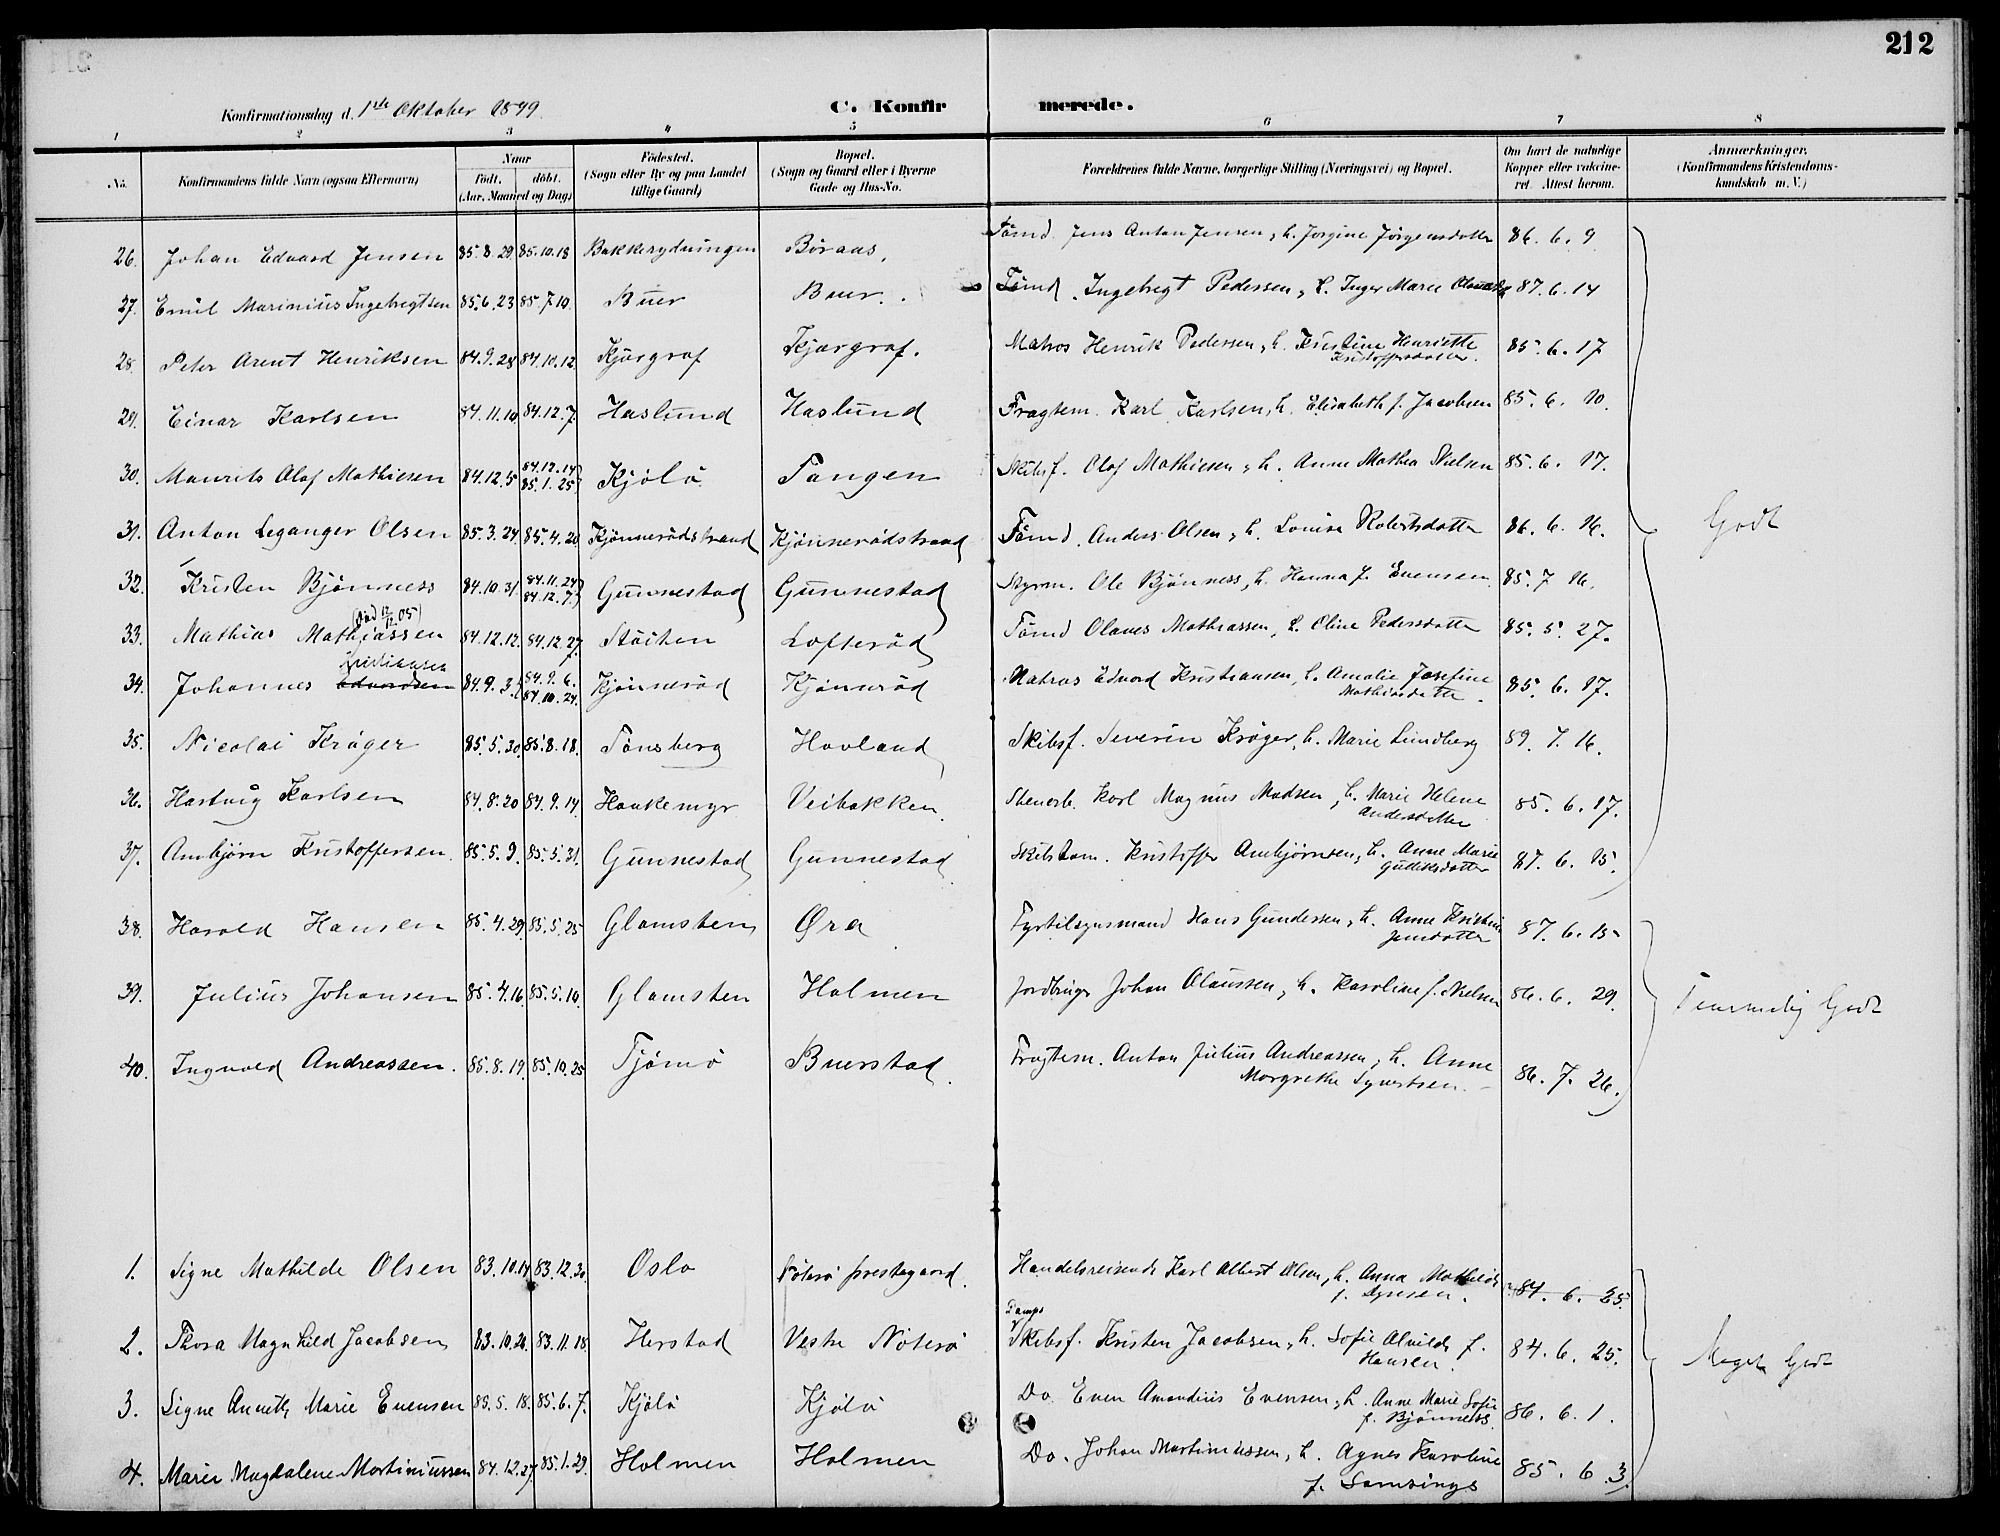 212
Konfirmationsdag d. 1ste Oktober 1899.
C. Konfirmerede.
1 2 3 4 5 6 7 8
No. Konfirmandens fulde Navn (ogsaa Efternavn) Naar født, døbt. (Aar, Maaned og Dag) Fødested. (Sogn eller By og paa Landet tillige Gaard) Bopæl. (Sogn og Gaard eller i Byerne Gade og Hus-No. Forældrenes fulde Navne, borgerlige Stilling (Næringsvei) og Bopæl. Om havt de naturlige Kopper eller vakcineret. Attest herom. Anmærkninger. (Konfirmandens Kristendomskundskab m. V.)
26. Johan Edvard Jensen 85.8.29 85.10.18 Bakkerydningen Børaas. Tømd. Jens Anton Jensen, h. Jorgine Jørgensdatter 86.6.9.
27. Emil Marinius Ingebrigtsen 85.6.23 85.7.19. Buer Buer. Tømd. Ingebrigt Pedersen, h. Inger Marie 87.6.14
28. Peter Arent Henriksen 84.9.28 84.10.12 Kjærgraf Kjærgraf. Matros Henrik Pedersen, h. Kristine Henriette Kristoffersdatter. 85.6.17
29. Einar Karlsen 84.11.10 84.12.7. Haslund Haslund Fragtem. Karl Karlsen, h. Elisabeth f. Jacobsen 85.6.10.
30. Maurits Olaf Mathiesen 84.12.5 84.12.14 85.1.25 Kjølø Tangen Skibsf. Olaf Mathiesen, h. Anne Mathea Nielsen 85.6.17.
31. Anton Leganger Olsen 85.3.24. 85.4.20 Kjønnerødstrand Kjønnerødstrand Tømd. Anders Olsen, h. Lovise Robertsdatter 86.6.16. Godt
32. Kristen Bjønness 84.10.31. 84.11.24 84.12.7. Gunnestad Gunnestad Styrm. Ole Bjønness, h. Hanna f. Evensen. 85.7.16.
33. Mathias Mathiassen (død 12/12 05) 84.12.12. 84.12.27. Støiten Lofterød Tømd Olaves Mathiassen, h. Oline Pedersdatter 85.5.27.
34. Johannes Edvardsen Kristiansen 84.9.3. 84.9.6. 84.10.24. Kjønnerød Kjønnerød Matros Edvard Kristiansen, h. Amalie Josefine Mathiasdatter. 85.6.17.
35. Nicolai Krøger 85.5.30. 85.8.18. Tønsberg Hovland Skibsf. Severin Krøger, h. Marie Lundberg 89.7.16.
36. Hartvig Karlsen 84.8.20 84.9.14. Haukemyr Veibakken. Stenarb. Karl Magnus Madsen, h. Marie Helene Andersdatter 85.6.17.
37. Ambjørn Kristoffersen. 85.5.9. 85.5.31. Gunnestad Gunnestad. Skibstøm. Kristoffer Ambjørnsen, h. Anne Marie Gudiksdatter 87.6.15.
38. Harald Hansen 85.4.29. 85.5.25 Glomsten Øra Fyrtilsynsmand Hans Gundersen, h. Anne Kristine Jensdatter 87.6.15
39. Julius Johansen 85.4.16. 85.5.10. Glomsten Holmen Jordbruger Johan Olaussen, h. Karoline f. Nielsen 86.6.29. Temmelig Godt
40. Ingvald Andreassen. 85.8.19. 85.10.25 Tjømø Buerstad. Fragtem. Anton Julius Andreassen, h. Anne Margrethe Syvertsen. 86.7.26.
1. Signe Mathilde Olsen 83.10.14 83.12.30 Oslo Nøterø prestegaard. Handelsreisende Karl Albert Olsen, h. Anna Mathilde f. 84.6.25.
2. Thora Magnhild Jacobsen 83.10.20. 83.11.18. Herstad Vestre Nøterø Damps Skibsf. Kristen Jacobsen, h. Sofie Alvilde f. Hansen. 84.6.25. Meget Godt
3. Signe Annette Marie Evensen 85.5.18. 85.6.7. Kjølø Kjølø Do. Even Amandius Evensen, h. Anne Marie Sofie f. Bjønness 86.6.1.
4. Marie Magdalene Martiniussen 84.12.27. 85.1.29. Holmen Holmen Do. Johan Martiniussen, h. Agnes Karoline f. Samsings 85.6.3.